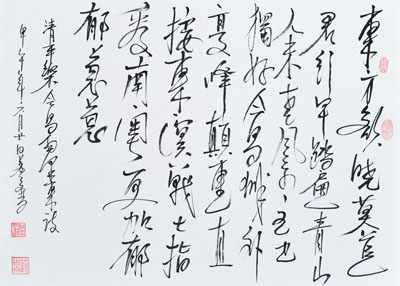 東方欲曉莫道
君行早踏遍青山
人未老風景这边
獨好会昌城外
高峰顛連直
接東溟戰士指
看南粵更加郁
郁葱葱
清平樂会昌
甲午年六月廿日